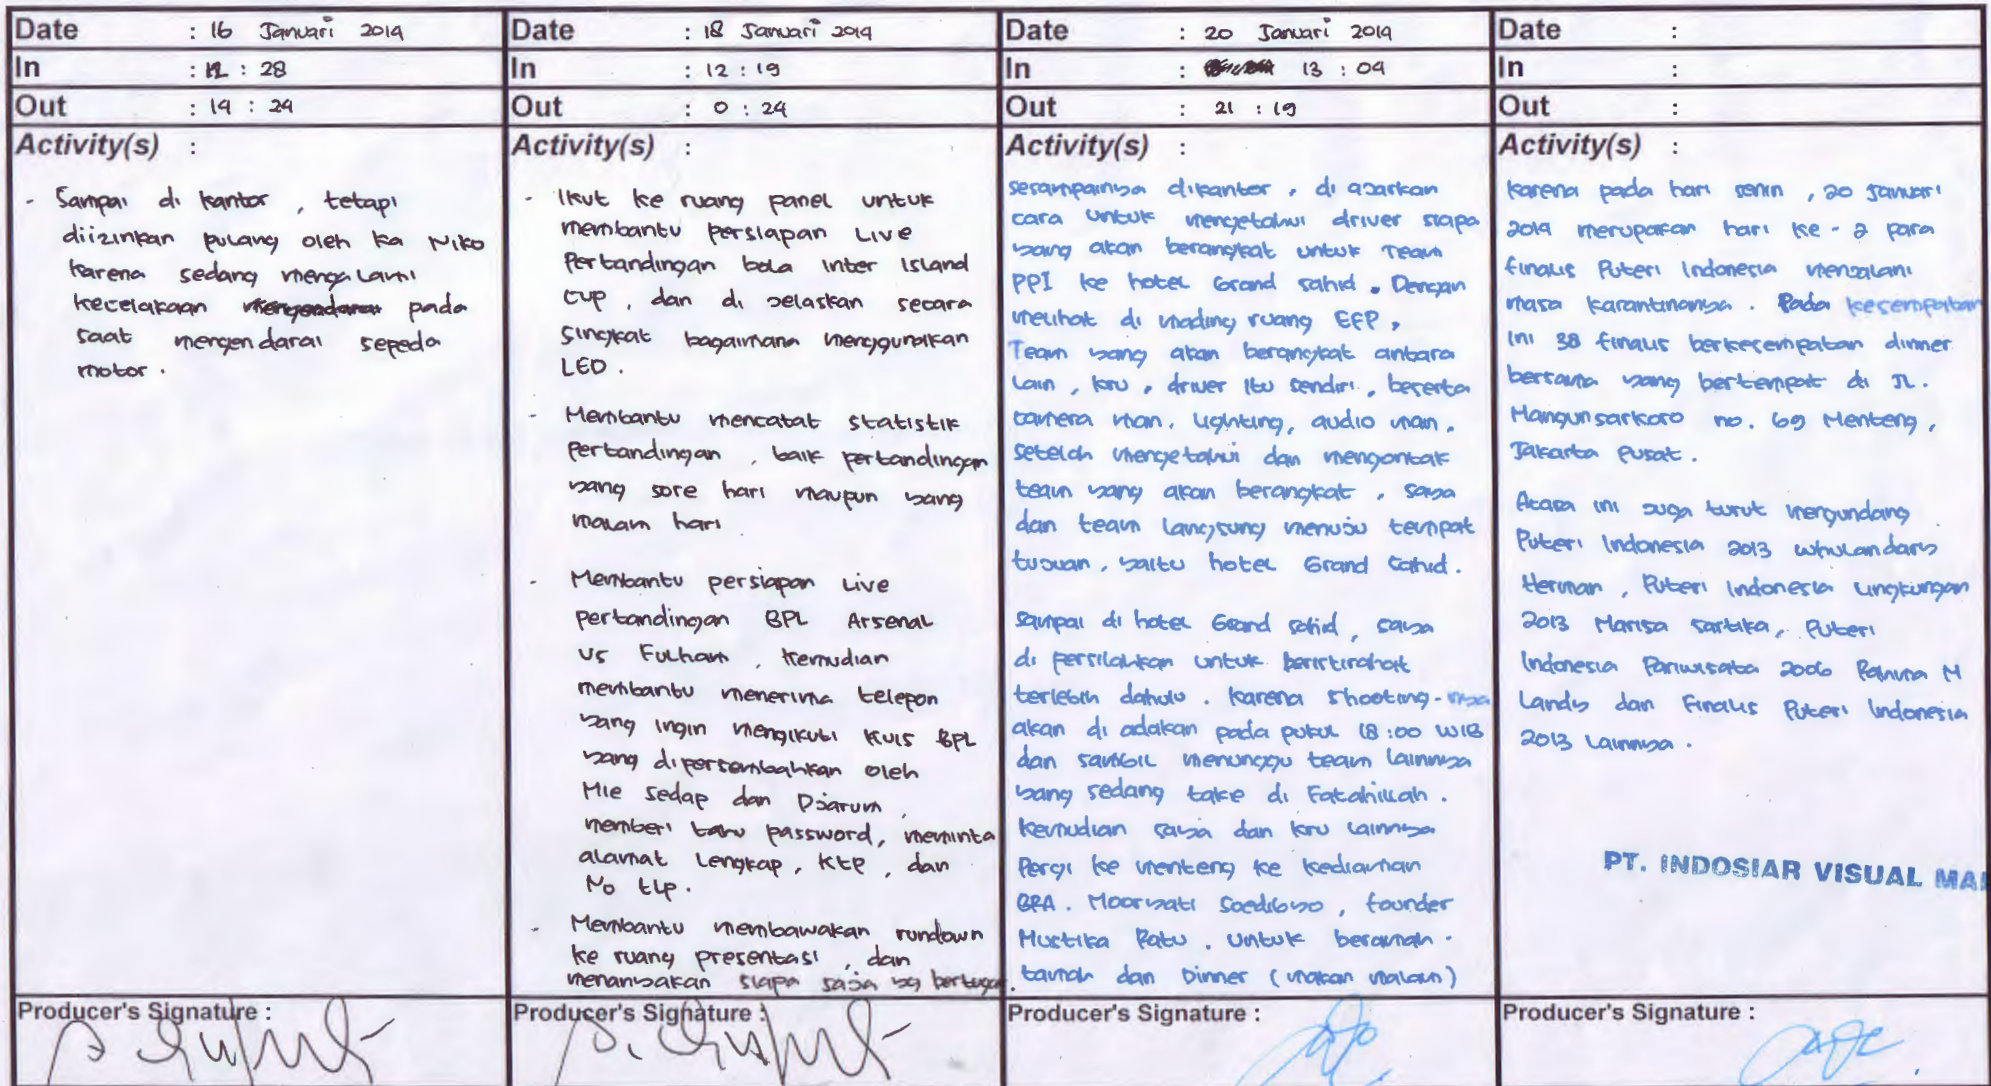 Date : 16 Januari 2014
In : 12 : 28
Out : 14 : 24
Activity(s) :
- Sampai di kantor , tetapi
diizinkan pulang oleh Ka Niko
karena sedang mengalami
kecelakaan pada
saat mengendarai sepeda
motor .
Producer's Signature :
Date : 18 Januari 2014
In : 12 : 19
Out : 0 : 24
Activity(s) :
- Ikut ke ruang panel untuk
membantu persiapan Live
Pertandingan bola Inter Island
Cup , dan di jelaskan secara
singkat bagaimana menggunakan
LED .
- Membantu mencatat statistik
pertandingan , baik pertandingan
yang sore hari maupun yang
malam hari
- Membantu persiapan Live
pertandingan BPL Arsenal
vs Fulham , kemudian
membantu menerima telepon
yang ingin mengikuti kuis BPL
yang dipersembahkan oleh
Mie sedap dan Djarum ,
memberi tahu password, meminta
alamat Lengkap , KTP , dan
No tlp.
- Membantu membawakan rundown
ke ruang presentasi , dan
menanyakan siapa saja yg bertugas.
Producer's Signature :
Date : 20 Januari 2014
In : 13 : 04
Out : 21 : 19
Activity(s) :
sesampainya dikantor , di ajarkan
cara untuk mengetahui driver siapa
yang akan berangkat untuk Team
PPI ke hotel Grand sahid . Dengan
melihat di mading ruang EFP ,
Team yang akan berangkat antara
Lain , kru , driver itu sendiri , beserta
camera man, lighting, audio man .
setelah mengetahui dan mengontak
team yang akan berangkat , saya
dan team Langsung menuju tempat
tujuan , yaitu hotel Grand Sahid .
Sampai di hotel Grand sahid , saya
di persilahkan untuk beristirahat
terlebih dahulu . Karena shooting-nya
akan di adakan pada pukul 18:00 WIB
dan sambil menunggu team lainnya
yang sedang take di Fatahillah .
Kemudian saya dan kru lainnya
Pergi ke menteng ke kediaman
BRA . Mooryati Soedibyo , founder
Mustika Ratu , untuk beramah -
tamah dan Dinner (makan malam)
Producer's Signature :
Date :
In :
Out :
Activity(s) :
Karena pada hari senin , 20 Januari
2014 merupakan hari ke - 2 para
finalis Puteri Indonesia menjalani
masa karantinanya . Pada kesempatan
ini 38 finalis berkesempatan dinner
bersama yang bertempat di JL.
Mangunsarkoro no. 69 Menteng ,
Jakarta Pusat .
Acara ini juga turut mengundang
Puteri Indonesia 2013 Whulandary
Herman , Puteri Indonesia Lingkungan
2013 Marisa Sartika , Puteri
Indonesia Pariwisata 2006 Rahma M
Landy dan Finalis Puteri Indonesia
2013 Lainnya .
PT. INDOSIAR VISUAL MA
Producer's Signature :